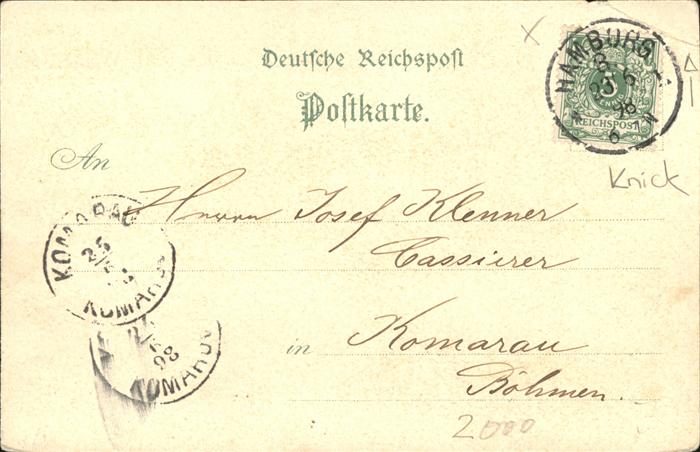 Deutsche Reichspost
Postkarte.
HAMBURG
5
REICHSPOST
98
6-7N
Knick
An
Herrn Josef Klenner
Cassierer
in Komarau
Böhmen.
KOMORAU
25
KOMAROV
98
KOMAROV
2000